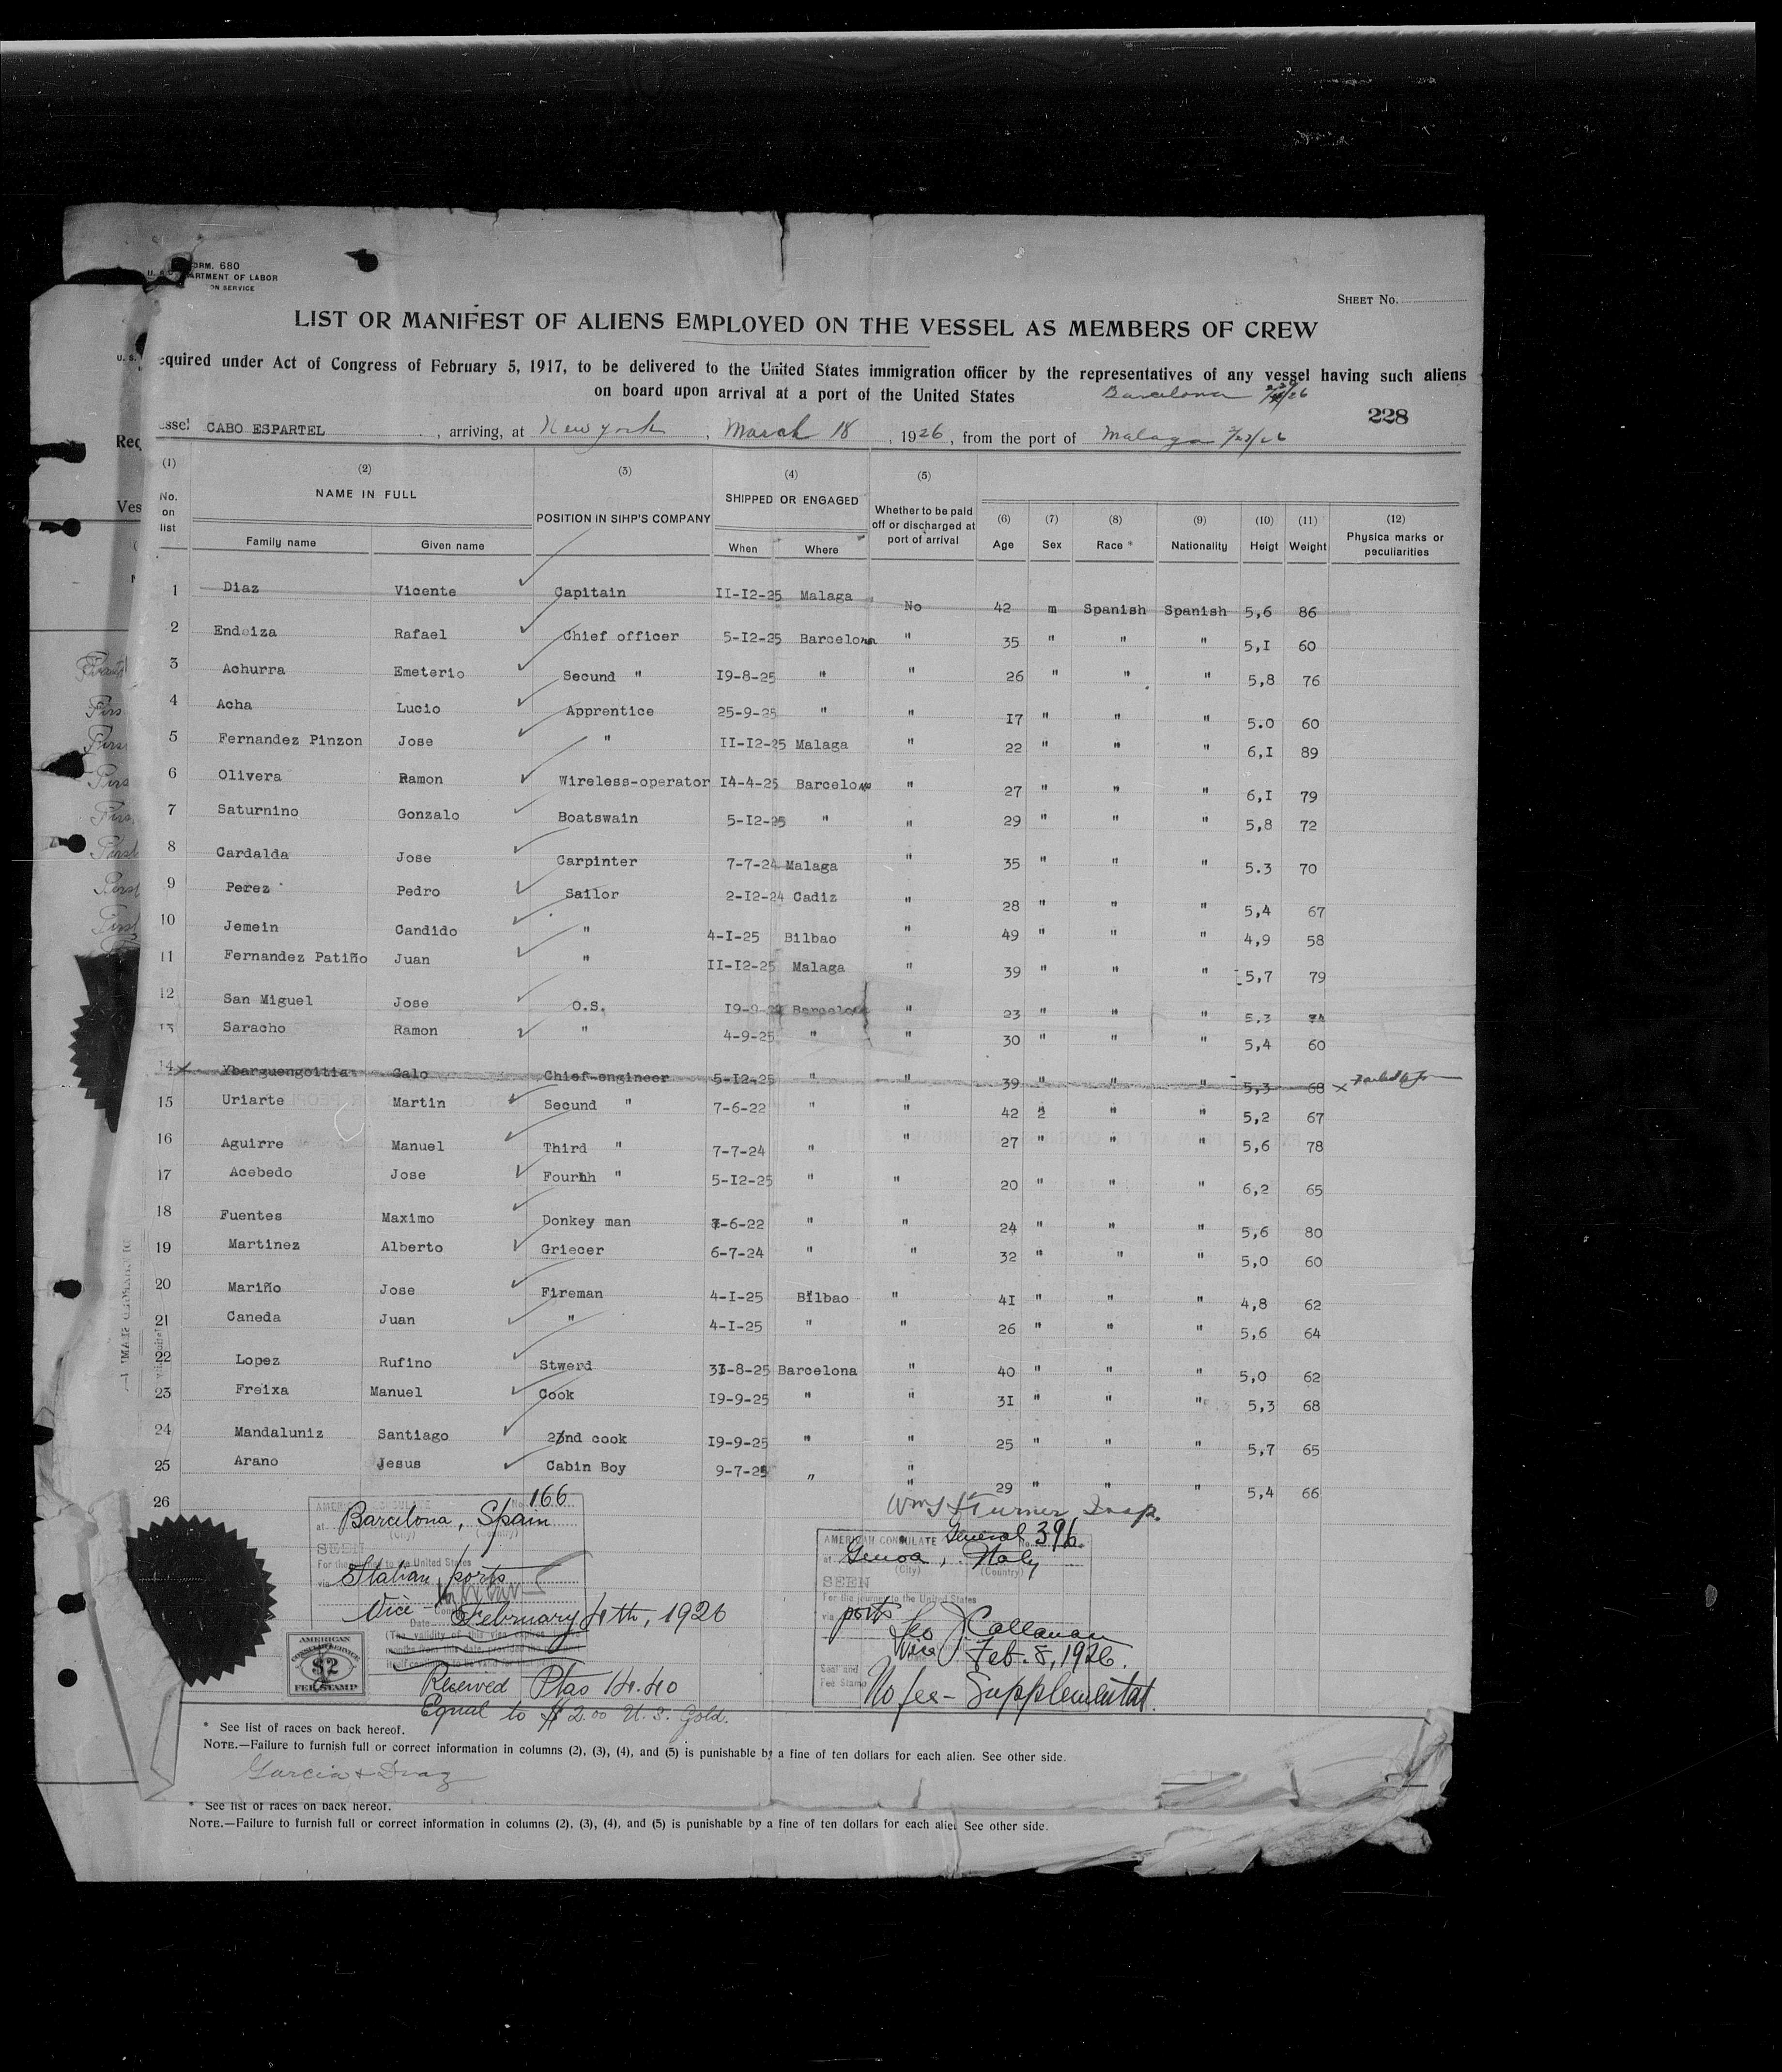 FORM. 680
U. S. DEPARTMENT OF LABOR
ON SERVICE
SHEET No.
LIST OR MANIFEST OF ALIENS EMPLOYED ON THE VESSEL AS MEMBERS OF CREW
equired under Act of Congress of February 5, 1917, to be delivered to the United States immigration officer by the representatives of any vessel having such aliens
on board upon arrival at a port of the United States Barcelona
228
essel CABO ESPARTEL, arriving, at New York, March 18, 1926, from the port of Malaga 2/23/26
(1) (2) (3) (4) (5)
No. on list NAME IN FULL POSITION IN SIHP'S COMPANY SHIPPED OR ENGAGED Whether to be paid off or discharged at port of arrival (6) (7) (8) (9) (10) (11) (12)
Family name Given name When Where Age Sex Race * Nationality Heigt Weight Physica marks or peculiarities
1 Diaz Vicente Capitain II-I2-25 Malaga No 42 m Spanish Spanish 5,6 86
2 Endeiza Rafael Chief officer 5-I2-25 Barcelona " 35 " " " 5,I 60
3 Achurra Emeterio Secund " I9-8-25 " " 26 " " " 5,8 76
4 Acha Lucio Apprentice 25-9-25 " " I7 " " " 5.0 60
5 Fernandez Pinzon Jose " II-I2-25 Malaga " 22 " " " 6,I 89
6 Olivera Ramon Wireless-operator I4-4-25 Barcelona " 27 " " " 6,I 79
7 Saturnino Gonzalo Boatswain 5-I2-25 " " 29 " " " 5,8 72
8 Cardalda Jose Carpinter 7-7-24 Malaga " 35 " " " 5.3 70
9 Perez Pedro Sailor 2-I2-24 Cadiz " 28 " " " 5,4 67
10 Jemein Candido " 4-I-25 Bilbao " 49 " " " 4,9 58
11 Fernandez Patiño Juan " II-I2-25 Malaga " 39 " " " 5,7 79
12 San Miguel Jose O.S. I9-9- Barcelona " 23 " " " 5.3 74
13 Saracho Ramon " 4-9-25 " " 30 " " " 5,4 60
14 x Ybarguengoitia Galo Chief-engineer 5-I2-25 " " 39 " " " 5,3 68 x Failed to Jo
15 Uriarte Martin Secund " 7-6-22 " " 42 " " " 5,2 67
16 Aguirre Manuel Third " 7-7-24 " " 27 " " " 5,6 78
17 Acebedo Jose Fourhh " 5-I2-25 " " 20 " " " 6,2 65
18 Fuentes Maximo Donkey man 7-6-22 " " 24 " " " 5,6 80
19 Martinez Alberto Griecer 6-7-24 " " 32 " " " 5,0 60
20 Mariño Jose Fireman 4-I-25 Bilbao " 4I " " " 4,8 62
21 Caneda Juan " 4-I-25 " " 26 " " " 5,6 64
22 Lopez Rufino Stwerd 3I-8-25 Barcelona " 40 " " " 5,0 62
23 Freixa Manuel Cook I9-9-25 " " 3I " " " 5,3 68
24 Mandaluniz Santiago 2nd cook I9-9-25 " " 25 " " " 5,7 65
25 Arano Jesus Cabin Boy 9-7-25 " " 29 " " " 5,4 66
26
Turner, Insp.
AMERICAN CONSULATE No. 166
at Barcelona, Spain
(City) (Country)
SEEN
For the journey to the United States
via Italian ports
Vice
Date February 4th, 1926
(The validity of this visa expires
months from this date, provided the
itself continues to be valid for that
AMERICAN
CONSULAR SERVICE
$2
FEE STAMP
Received Ptas 14.40
Equal to $2.00 U.S. Gold.
AMERICAN CONSULATE General No. 396
at Genoa, Italy
(City) (Country)
SEEN
For the journey to the United States
via ports
Leo J. Callanan
Vice
Date Feb. 8, 1926.
Seal and
Fee Stamp
No fee - Supplemental.
* See list of races on back hereof.
NOTE.—Failure to furnish full or correct information in columns (2), (3), (4), and (5) is punishable by a fine of ten dollars for each alien. See other side.
Garcia & Diaz
* See list of races on back hereof.
NOTE.—Failure to furnish full or correct information in columns (2), (3), (4), and (5) is punishable by a fine of ten dollars for each alie. See other side.